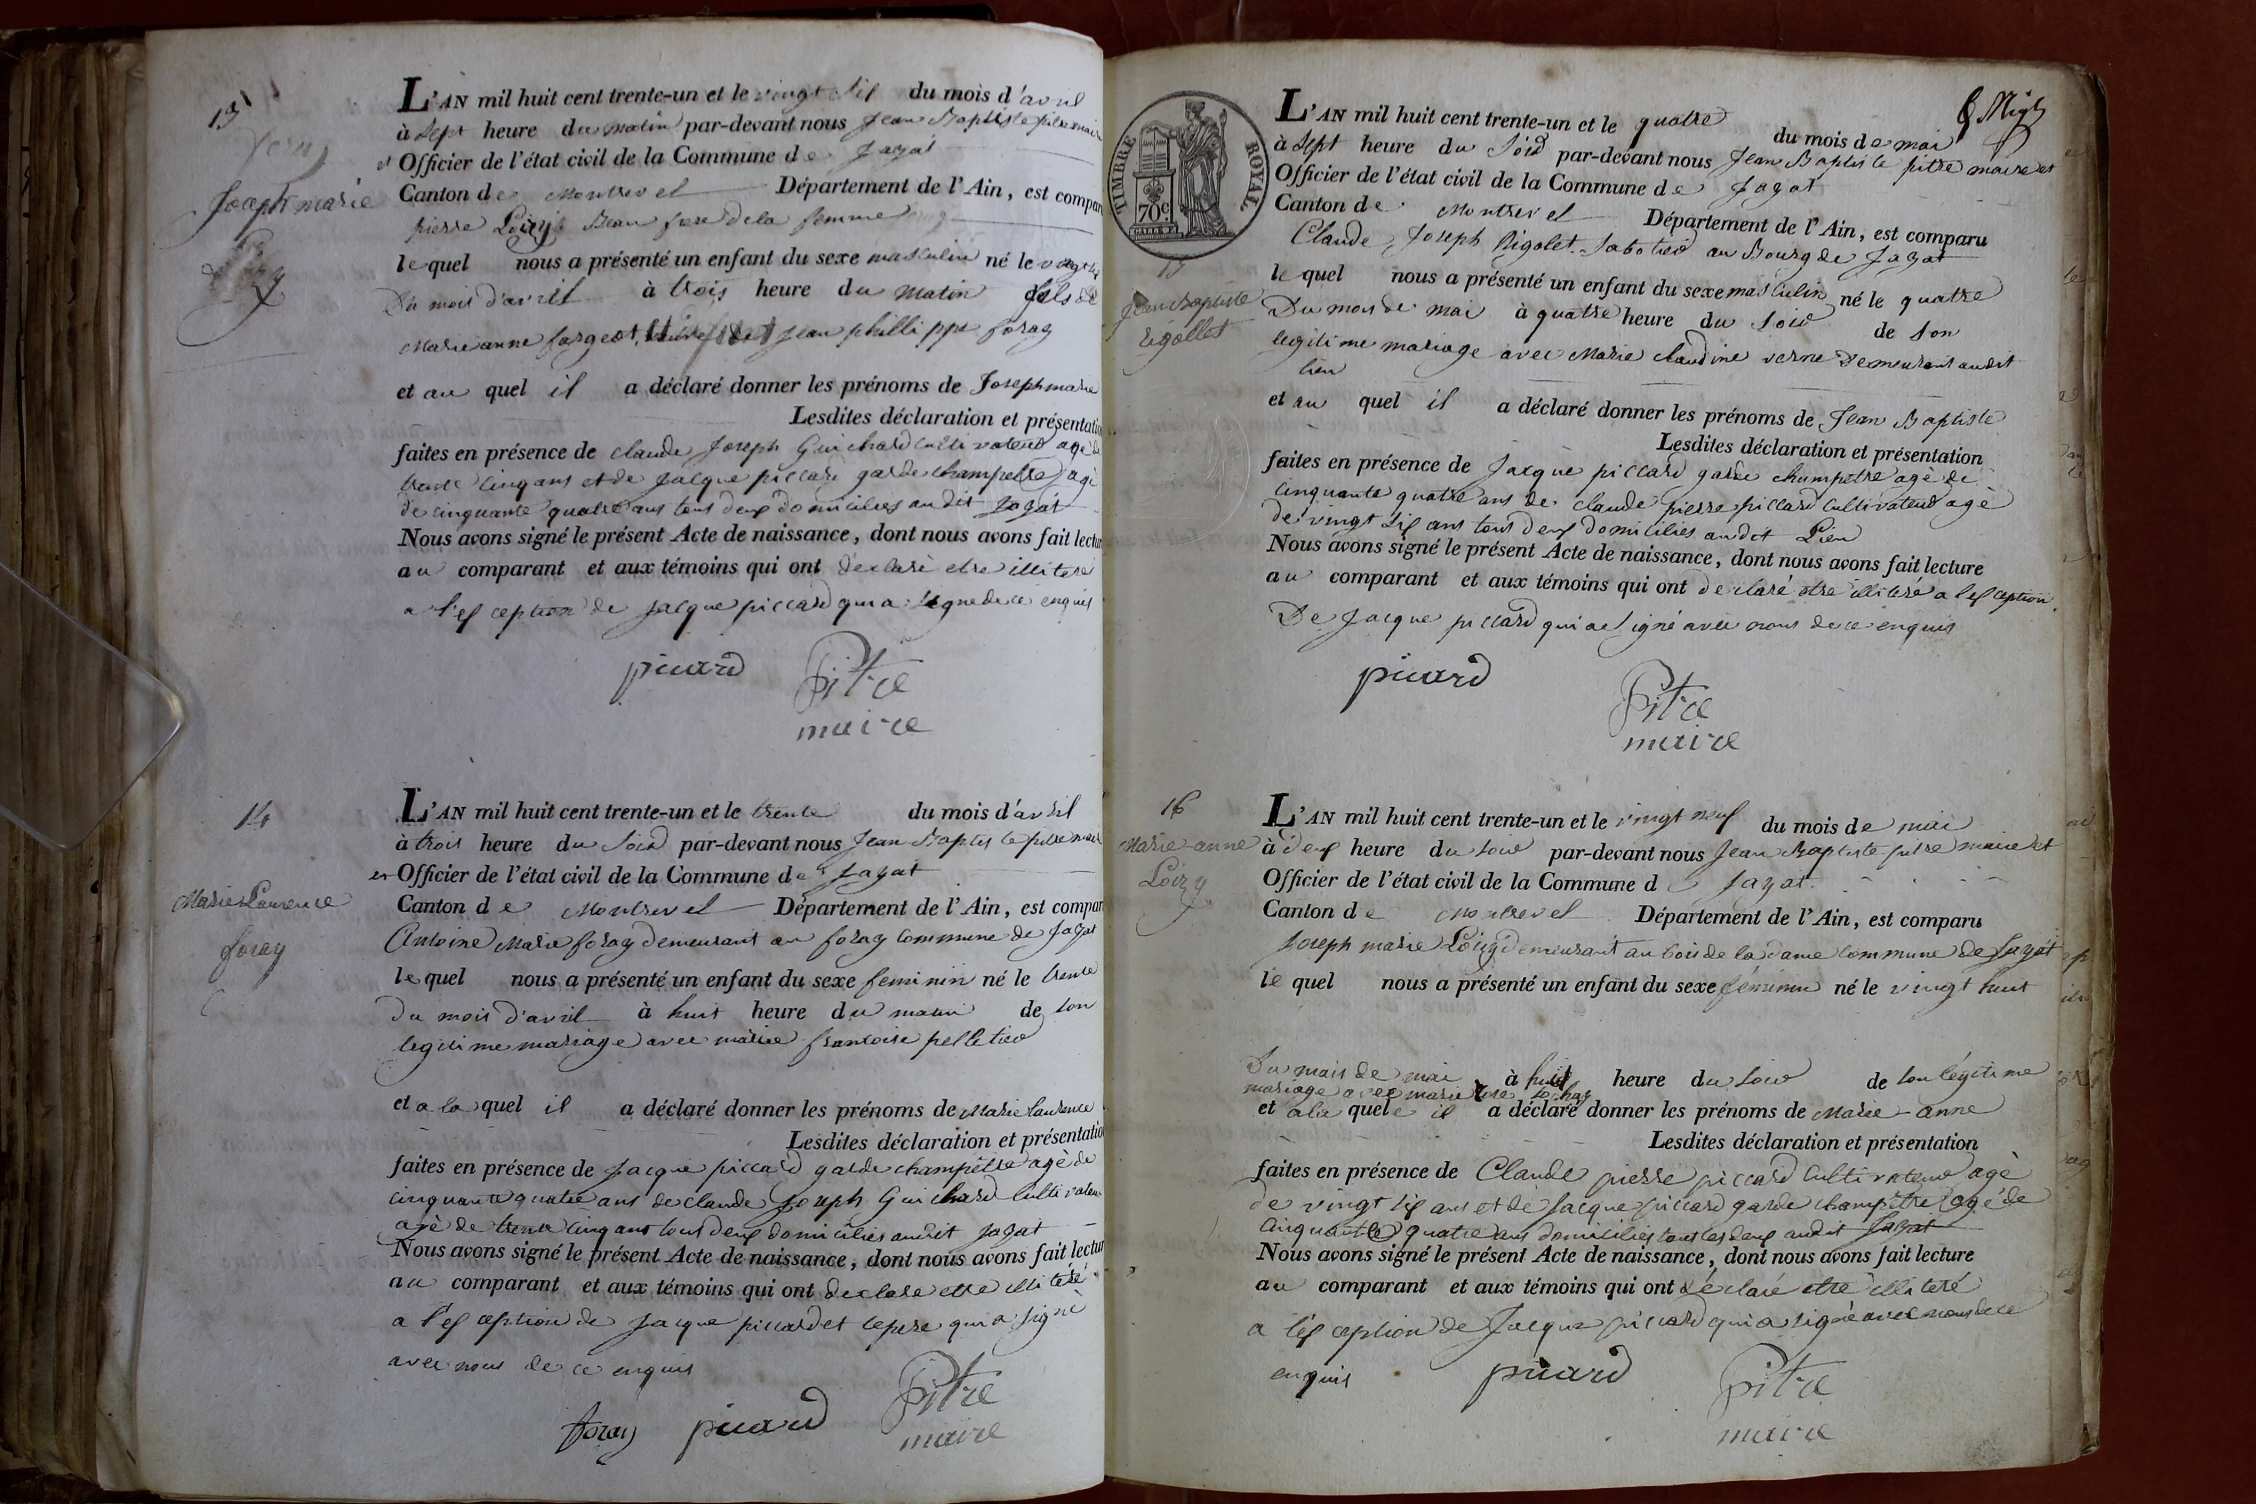 13
Joseph marie
L'AN mil huit cent trente-un et le vingt six du mois d'avril
à Sept heure du matin par-devant nous Jean Baptiste pitre maire
et Officier de l'état civil de la Commune de Jayat
Canton de Montrevel Département de l'Ain, est compar
pierre Loizy Beau frere de la femme
le quel nous a présenté un enfant du sexe masculin né le vingt six
Du mois d'avril à trois heure du matin fils de
Marie anne forgeot jean phillippe foray
et au quel il a déclaré donner les prénoms de Joseph marie
Lesdites déclaration et présentatio
faites en présence de claude Joseph Guichard cultivateur agé de
trente cinq ans et de Jacque piccard garde champetre agé
de cinquante quatre ans tous deux domiciliés au dit Jayat
Nous avons signé le présent Acte de naissance, dont nous avons fait lectur
au comparant et aux témoins qui ont déclaré etre illiteré
a l'exception de Jacque piccard qui a signé de ce enquis
picard Pitre
maire
14
Marie Laurence
foray
L'AN mil huit cent trente-un et le trente du mois d'avril
à trois heure du Soir par-devant nous Jean Baptiste pitre maire
et Officier de l'état civil de la Commune de Jayat
Canton de Montrevel Département de l'Ain, est compar
Antoine Marie foray demeurant au foray commune de Jayat
le quel nous a présenté un enfant du sexe feminin né le trente
Du mois d'avril à huit heure du matin de son
legitime mariage avec marie francoise pelletier
et a la quel il a déclaré donner les prénoms de Marie laurence
Lesdites déclaration et présentatio
faites en présence de Jacque piccard garde champêtre agé de
cinquante quatre ans de claude Joseph Guichard cultivateur
agé de trente cinq ans tous deux domiciliés audit Jayat
Nous avons signé le présent Acte de naissance, dont nous avons fait lectur
au comparant et aux témoins qui ont declaré etre illiteré
a l'exception de Jacque piccard et le pere qui a signé
avec nous de ce enquis
foray picard Pitre
maire
TIMBRE ROYAL
70c
15
Jean Baptiste
rigollet
L'AN mil huit cent trente-un et le quatre du mois de mai
à Sept heure du Soir par-devant nous Jean Baptiste pitre maire et
Officier de l'état civil de la Commune de Jayat
Canton de Montrevel Département de l'Ain, est comparu
Claude Joseph Rigolet Sabotier au Bourg de Jayat
le quel nous a présenté un enfant du sexe masculin né le quatre
Du mois de mai à quatre heure du soir de son
legitime mariage avec Marie claudine verne Demeurant audit
lieu
et au quel il a déclaré donner les prénoms de Jean Baptiste
Lesdites déclaration et présentation
faites en présence de Jacque piccard garde champetre agé de
cinquante quatre ans de claude pierre piccard cultivateur agé
de vingt six ans tous deux domiciliés audit Lieu
Nous avons signé le présent Acte de naissance, dont nous avons fait lecture
au comparant et aux témoins qui ont declaré etre illiteré a l'exception
De Jacque piccard qui a signé avec nous de ce enquis
picard Pitre
maire
16
Marie anne
Loizy
L'AN mil huit cent trente-un et le vingt neuf du mois de mai
à deux heure du soir par-devant nous Jean Baptiste pitre maire et
Officier de l'état civil de la Commune de Jayat
Canton de Montrevel Département de l'Ain, est comparu
Joseph marie Loizy demeurant au bois de la dame commune de Jayat
le quel nous a présenté un enfant du sexe féminin né le vingt huit
Du mois de mai à huit heure du soir de son légitime
mariage avec marie
et a la quele il a déclaré donner les prénoms de Marie anne
Lesdites déclaration et présentation
faites en présence de Claude pierre piccard cultivateur agé
de vingt six ans et de Jacque piccard garde champêtre agé de
cinquante quatre ans domiciliés tous les deux audit Jayat
Nous avons signé le présent Acte de naissance, dont nous avons fait lecture
au comparant et aux témoins qui ont déclaré etre illiteré
a l'exception de Jacque piccard qui a signé avec nous de ce
enquis picard Pitre
maire